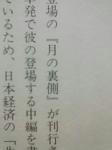 登場の『月の裏側』が刊行さ
本発で彼の登場する中編を書
ているため、日本経済の「失